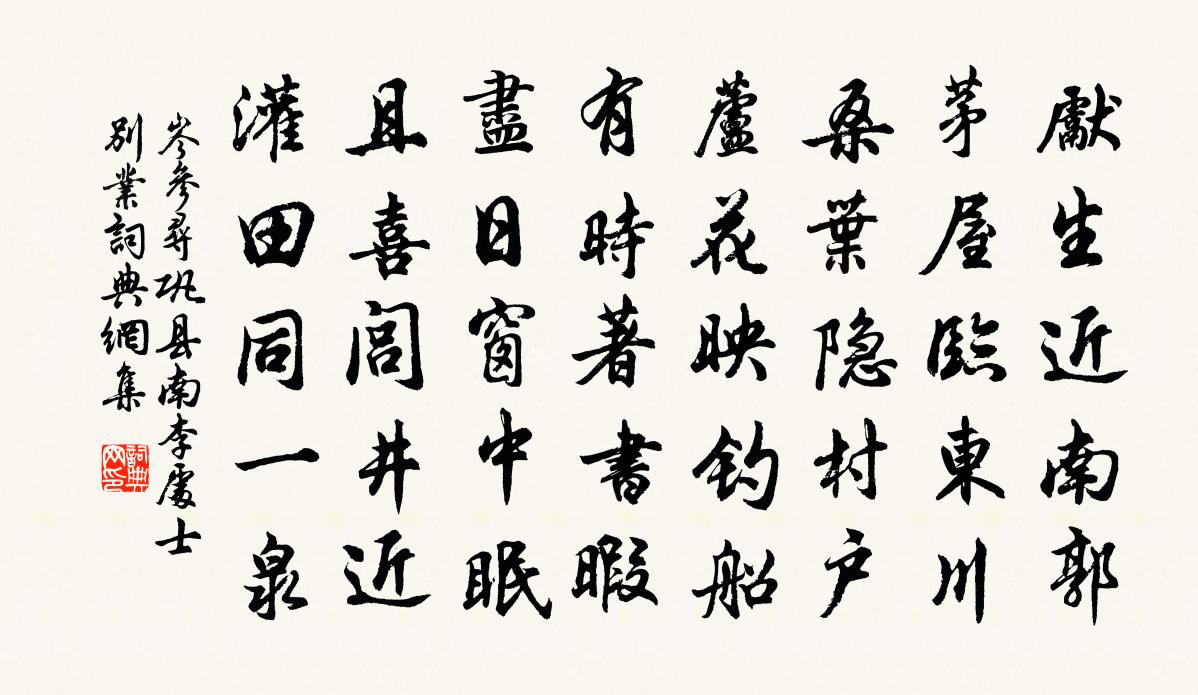 獻生近南郭
茅屋臨東川
桑葉隐村户
蘆花映钓船
有時著書暇
盡日窗中眠
且喜闾井近
灌田同一泉
岑參尋巩县南李處士
别業詞典網集
詞典网印